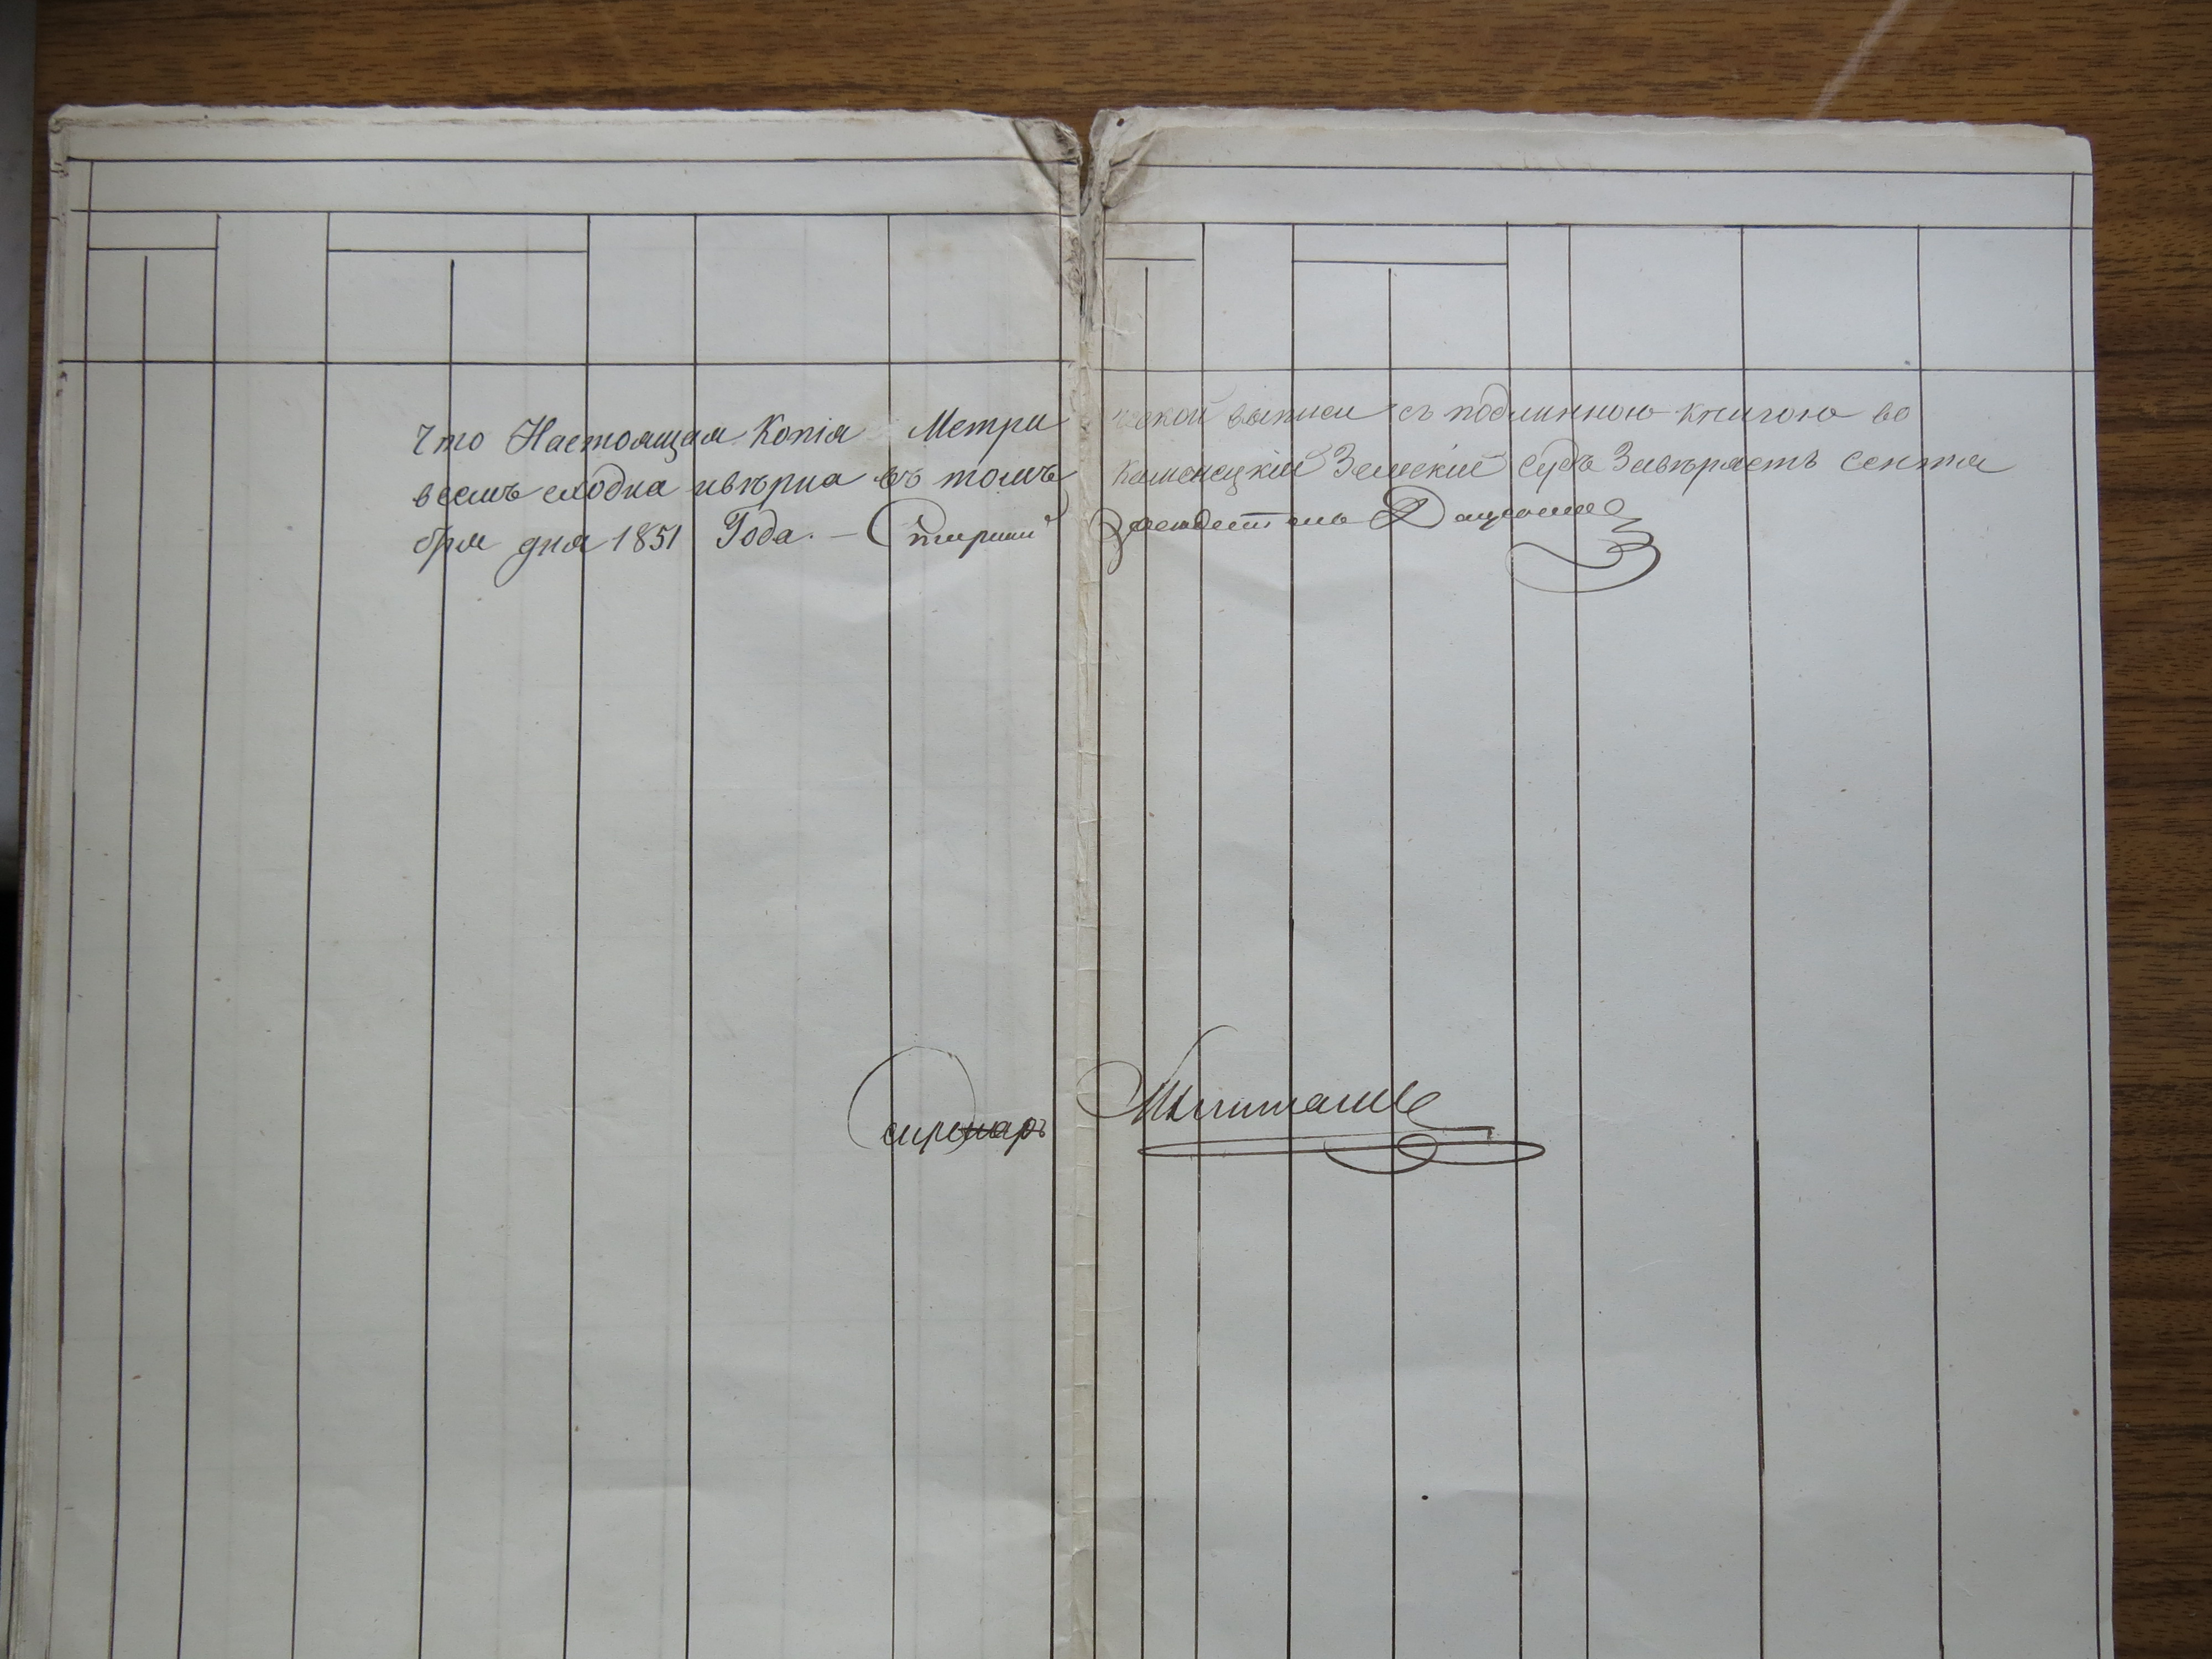 Что Настоящая Копія Метрической выписи съ подлинною книгою во
всемъ сходна и вѣрна въ томъ Каменецкій Земскій Судъ Завѣряетъ Сентя
бря дня 1851 Года. — Старшій Засѣдатель
Секретарь